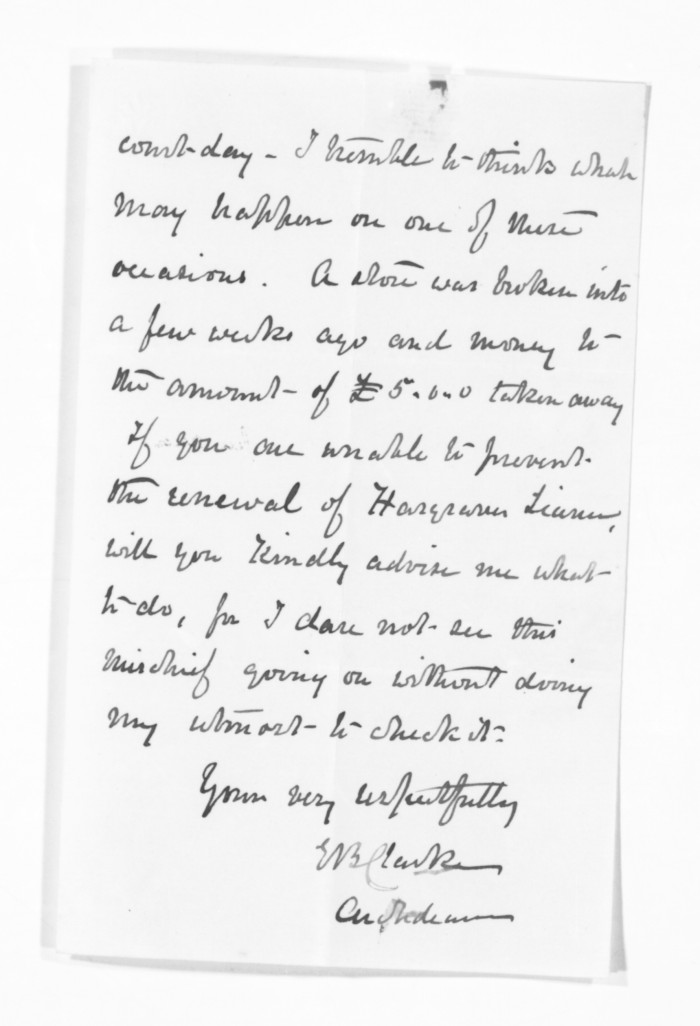 court-day - I tremble to think what
may happen on one of these
occasions. A store was broken into
a few weeks ago and money to
the amount of £5.0.0 taken away
If you are unable to prevent
the renewal of Hargraves License,
will you kindly advise me what
to do, for I dare not see this
mischief going on without doing
my utmost to check it.
Yours very respectfully
E B Clarke
Archdeacon